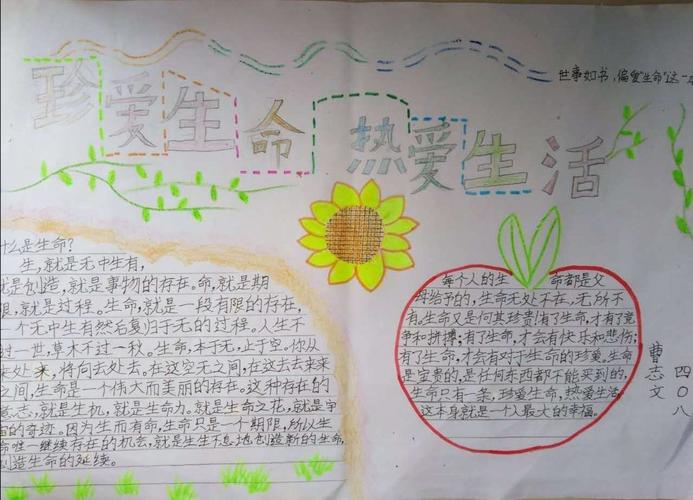 珍爱生命 热爱生活
世事如书，偏爱“生命”这一
什么是生命？
生，就是无中生有，
就是创造，就是事物的存在。命，就是期
限，就是过程。生命，就是一段有限的存在，
一个无中生有然后复归于无的过程。人生不
过一世，草木不过一秋。生命，本于无，止于空。你从
来处来，将向去处去。在这空无之间，在这去去来来
之间，生命是一个伟大而美丽的存在。这种存在的
意志，就是生机，就是生命力。就是生命之花，就是宇
宙的奇迹。因为生而有命，生命只是一个期限，所以生
命唯一继续存在的机会，就是生生不息地创造新的生命，
创造生命的延续。
每个人的生命都是父
母给予的，生命无处不在，无所不
有。生命又是何其珍贵！有了生命，才有了竞
争和拼搏；有了生命，才会有快乐和悲伤；
有了生命，才会有对于生命的珍爱。生命
是宝贵的，是任何东西都不能买到的，
生命只有一条，珍爱生命，热爱生活，
这本身就是一个人最大的幸福。
曹志文
四〇八